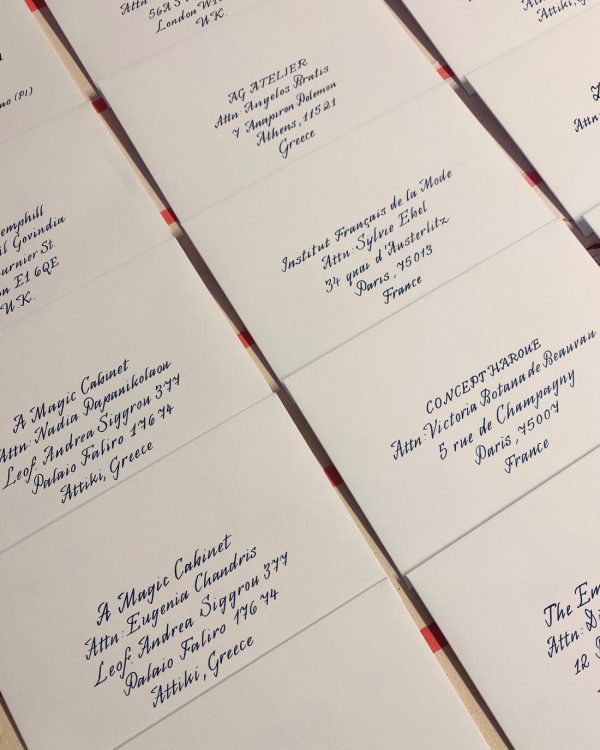 Attn:
56A S
London W1
U.K.
Attiki, G
AG ATELIER
Attn: Angelos Bratis
7 Anapiron Polemon
Athens, 11521
Greece
no (PI)
Institut Français de la Mode
Attn: Sylvie Ebel
34 quai d'Austerlitz
Paris, 75013
France
emphill
il Govindia
ournier St.
on E1 6QE
U.K.
CONCEPT HAROUE
Attn: Victoria Botana de Beauvau
5 rue de Champagny
Paris, 75007
France
A Magic Cabinet
Attn: Nadia Papanikolaou
Leof. Andrea Siggrou 377
Palaio Faliro 176 74
Attiki, Greece
A Magic Cabinet
Attn: Eugenia Chandris
Leof. Andrea Siggrou 377
Palaio Faliro 176 74
Attiki, Greece
The Em
Attn: Di
12